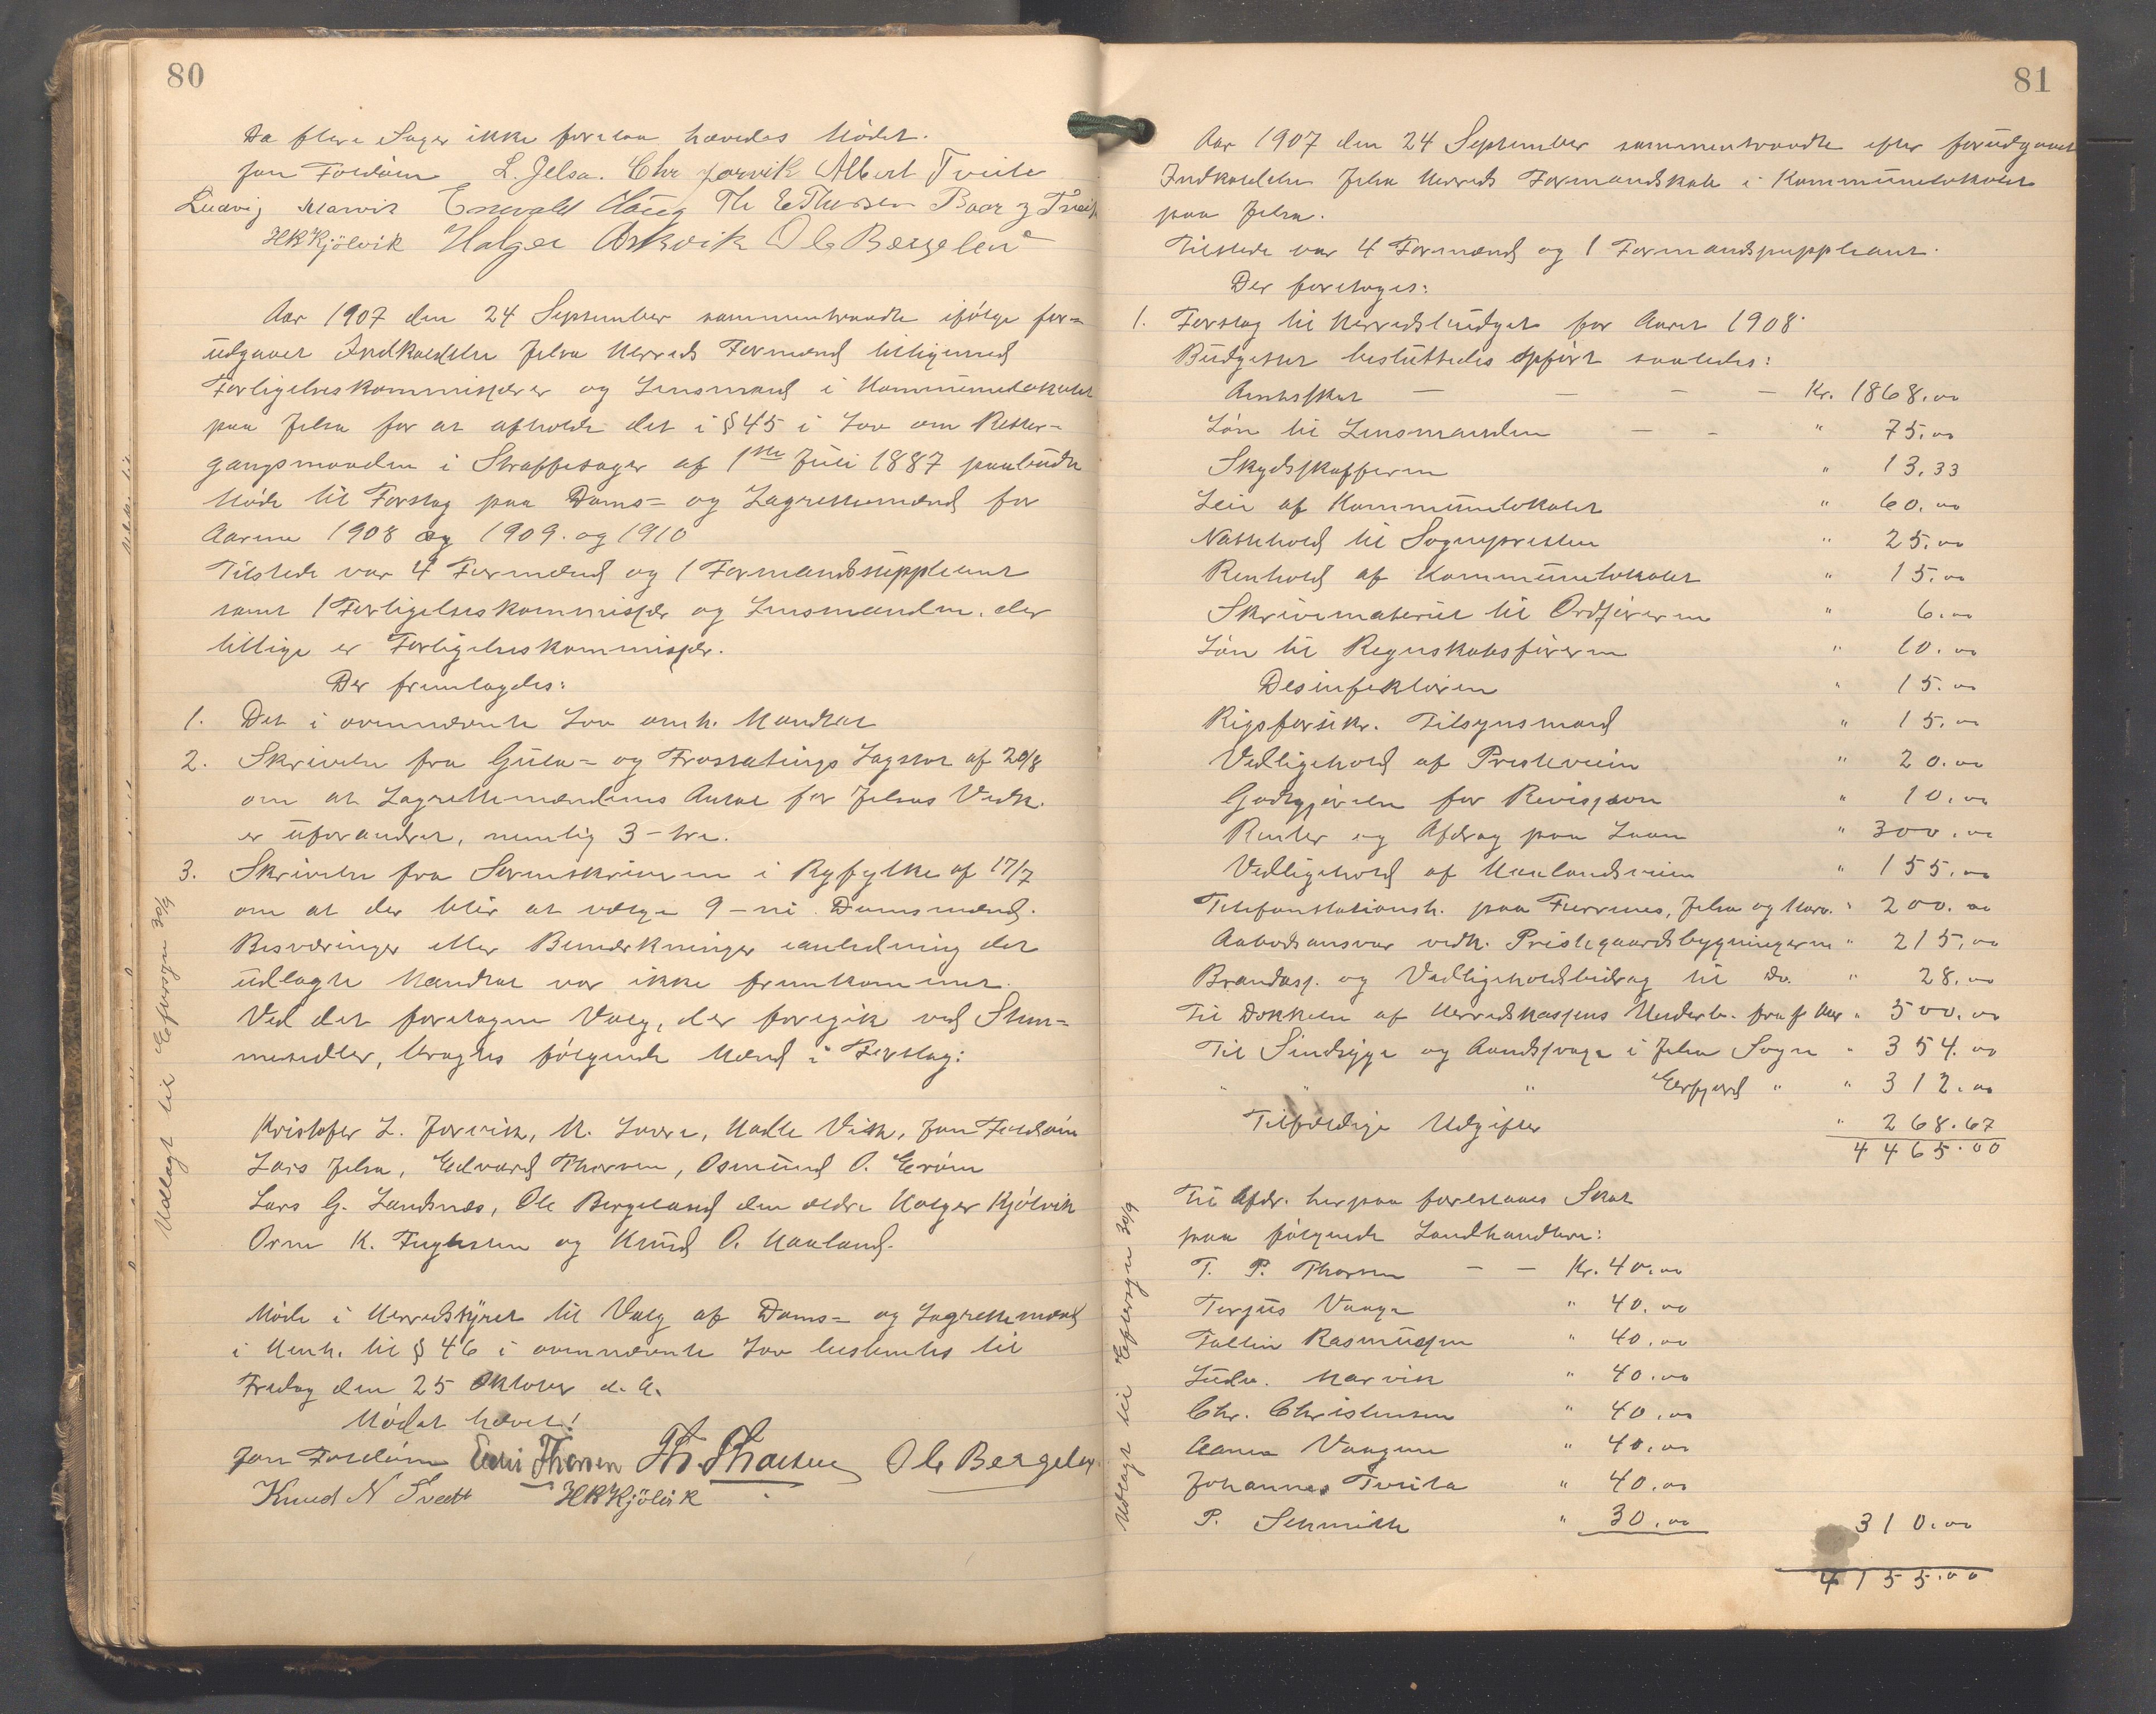 80
Da flere Sager ikke forelaa hævedes Mødet.
Jon Foldøen L. Jelsa. Chr Jørvik Albert Tveite
Ludvig Marvik Enevald Haug Th E Thorsen Baar J Tveit
HKKjölvik Holger Askvik Ole Bergeland
Aar 1907 den 24 September sammentraadte ifölge for-
udgaaet Indkaldelse Jelsa Herreds Formænd tilligemed
Forligelseskommissærer og Lensmand i Kommunelokalet
paa Jelsa for at afholde det i § 45 i Lov om Retter-
gangsmaaden i Straffesager af 1ste Juli 1887 paabudte
Möde til Forslag paa Doms- og Lagrettemænd for
Aarene 1908 og 1909. og 1910
Tilstede var 4 Formænd og 1 Formandssuppleant
samt 1 Forligelseskommissær og Lensmanden, der
tillige er Forligelseskommissær.
Der fremlagdes:
1. Det i ovennævnte Lov omh. Mandtal
2. Skrivelse fra Gula- og Frostatings Lagstol af 20/8
om at Lagrettemændenes Antal for Jelsas Vedk.
er uforandret, nemlig 3 - tre.
3. Skrivelse fra Sorenskriveren i Ryfylke af 17/7
om at der blir at vælge 9 - ni Domsmænd.
Besværinger eller Bemærkninger i anledning det
udlagte Mandtal var ikke fremkommet.
Ved det foretagne Valg, der foregik ved Stem-
mesedler, bragtes fölgende Mænd i Forslag:
Kristofer L. Jørvik, M. Lovra, Malle Vik, Jon Foldöen
Lars Jelsa, Edvard Thorsen, Osmund O. Eröen
Lars G. Landsnæs, Ole Bergeland den ældre Holger Kjölvik
Orm K. Fuglesten og Knud O. Haaland.
Möde i Herredstyret til Valg af Doms- og Lagrettemænd
i Henh. til § 46 i ovennævnte Lov bestemtes til
Fredag den 25 Oktober d. A.
Mödet hævet!
Jon Foldöen Edv. Thorsen Th. Thorsen Ole Bergeland
Knud N Tveitt HKKjölvik
Udlagt til Eftersyn 30/9
81
Aar 1907 den 24 September sammentraadte efter forudgaaet
Indkaldelse Jelsa Herreds Formandskab i Kommunelokalet
paa Jelsa.
Tilstede var 4 Formænd og 1 Formandssuppleant.
Der foretoges:
1. Forslag til Herredsbudget for Aaret 1908.
Budgettet besluttedes opfört saaledes:
Amtsskat — — — — Kr. 1868.00
Lön til Lensmanden — - " 75.00
Skydsskafferen " 13.33
Leie af Kommunelokalet " 60.00
Nattehold til Sognepresten " 25.00
Renhold af Kommunelokalet " 15.00
Skrivematerial til Ordföreren " 6.00
Lön til Regnskabsföreren " 10.00
Desinfektören " 15.00
Rigsforsikr. Tilsynsmand " 15.00
Vedligehold af Presteveien " 20.00
Godtgjörelse for Revisjon " 10.00
Renter og Afdrag paa Laan " 300.00
Vedligehold af Haalandsveien " 155.00
Telefonstationsh. paa Forenes, Jelsa og Marv. " 200.00
Aabodsansvar vedk. Prestegaardsbygningerne " 215.00
Brandass. og Vedligeholdsbidrag til Do. " 28.00
Til Dækkelse af Herredskassens Underb. fra f. Aar " 500.00
Til Sindsyge og Aandssvage i Jelsa Sogn " 354.00
" " " Erfjord " " 312.00
Tilfældige Udgifter " 268.67
4465.00
Til Afdr. herpaa foreslaaes Skat
paa fölgende Landhandlere:
T. P. Thorsen — — Kr. 40.00
Torjus Vaage " 40.00
Tallin Rasmussen " 40.00
Ludv. Marvik " 40.00
Chr. Christensen " 40.00
Aanen Vaagen " 40.00
Johannes Tveita " 40.00
P. Schmith " 30.00 310.00
4155.00
Udlagt til Eftersyn 30/9